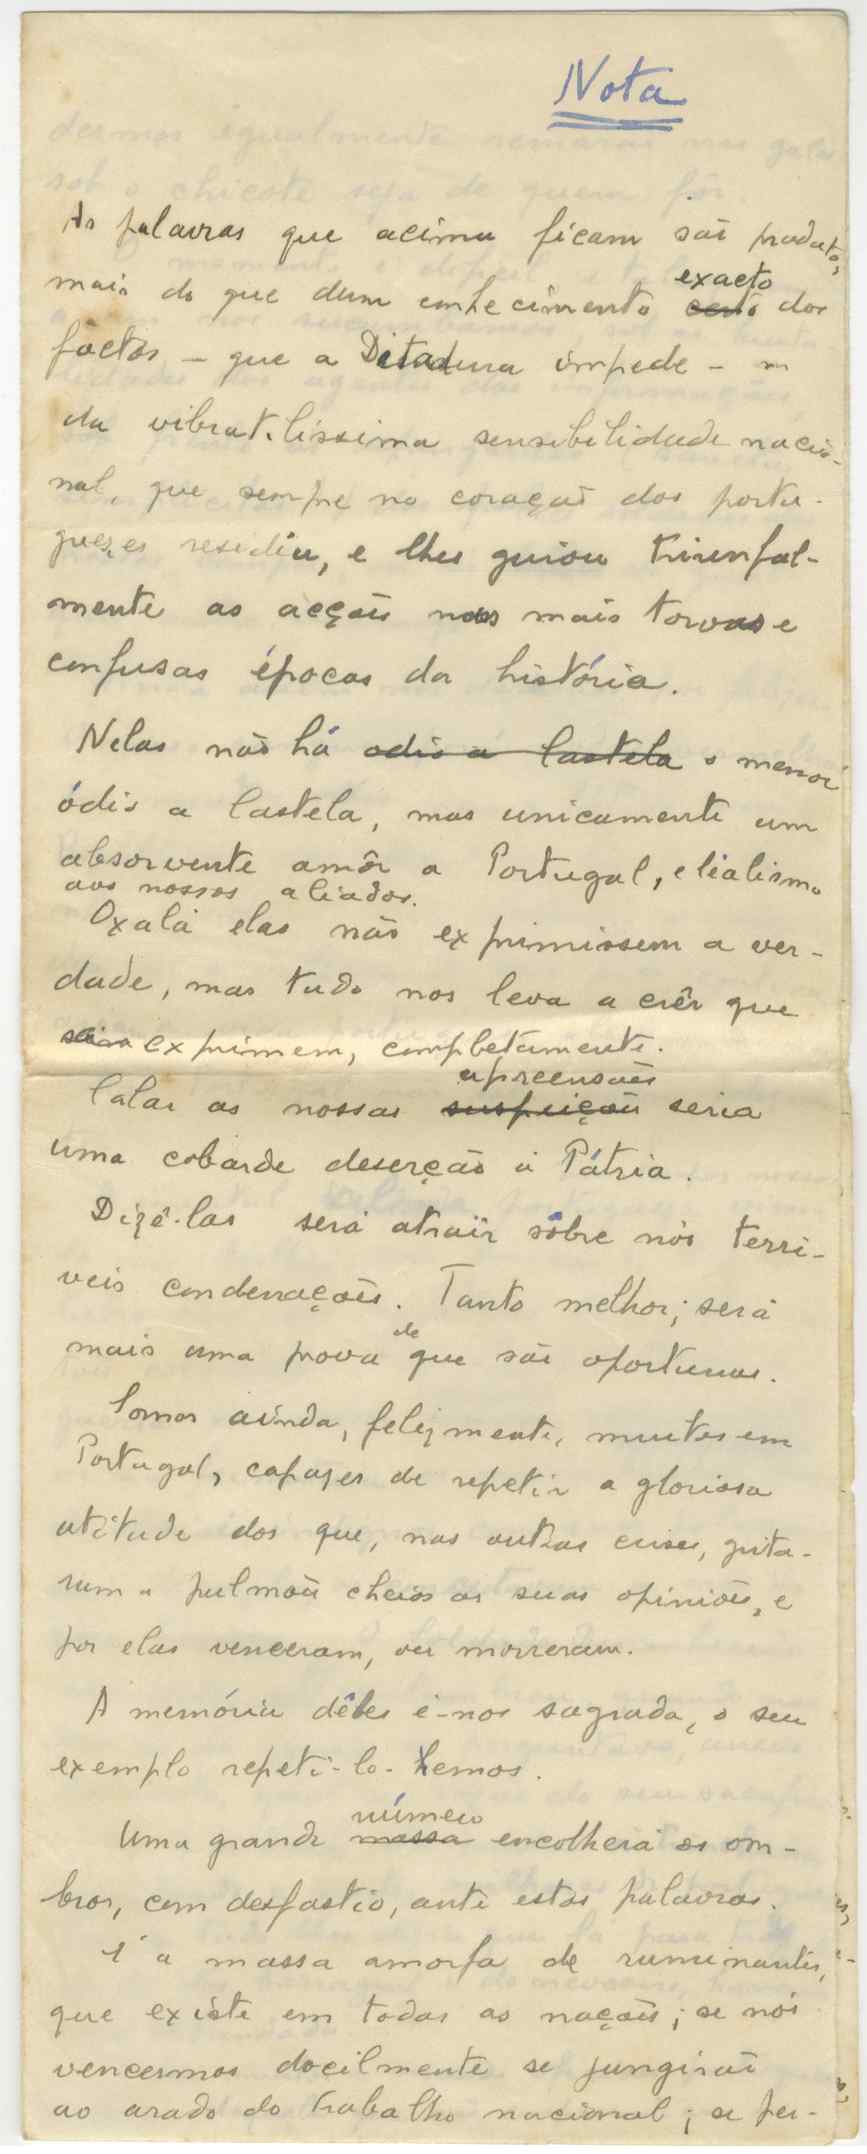 Nota
As palavras que acima ficam são produtos,
mais do que dum conhecimento certo exacto dos
factos — que a Ditadura impede —
da vibratilíssima sensibilidade nacio-
nal, que sempre no coração dos portu-
gueses residiu, e lhes guiou triunfal-
mente as acções nas mais torvas e
confusas épocas da história.
Nelas não há odio a Castela o menor
ódio a Castela, mas unicamente um
absorvente amôr a Portugal, e lialismo
aos nossos aliados.
Oxalá elas não exprimissem a ver-
dade, mas tudo nos leva a crêr que
exprimem, completamente.
Calar as nossas suspeições apreensões seria
uma cobarde deserção á Pátria.
Dizê-las será atraír sôbre nós terri-
veis condenações. Tanto melhor; será
mais uma prova de que são oportunas.
Somos aínda, felizmente, muitos em
Portugal, capazes de repetir a gloriosa
atitude dos que, nas outras crises, grita-
ram a pulmões cheios as suas opiniões, e
por elas venceram, ou morreram.
A memória dêles é-nos sagrada, o seu
exemplo repeti-lo-hemos.
Uma grande massa número encolherá os om-
bros, com desfastio, ante estas palavras.
É a massa amorfa de ruminantes,
que existe em todas as nações; se nós
vencermos docilmente se jungirão
ao arado do trabalho nacional; se per-